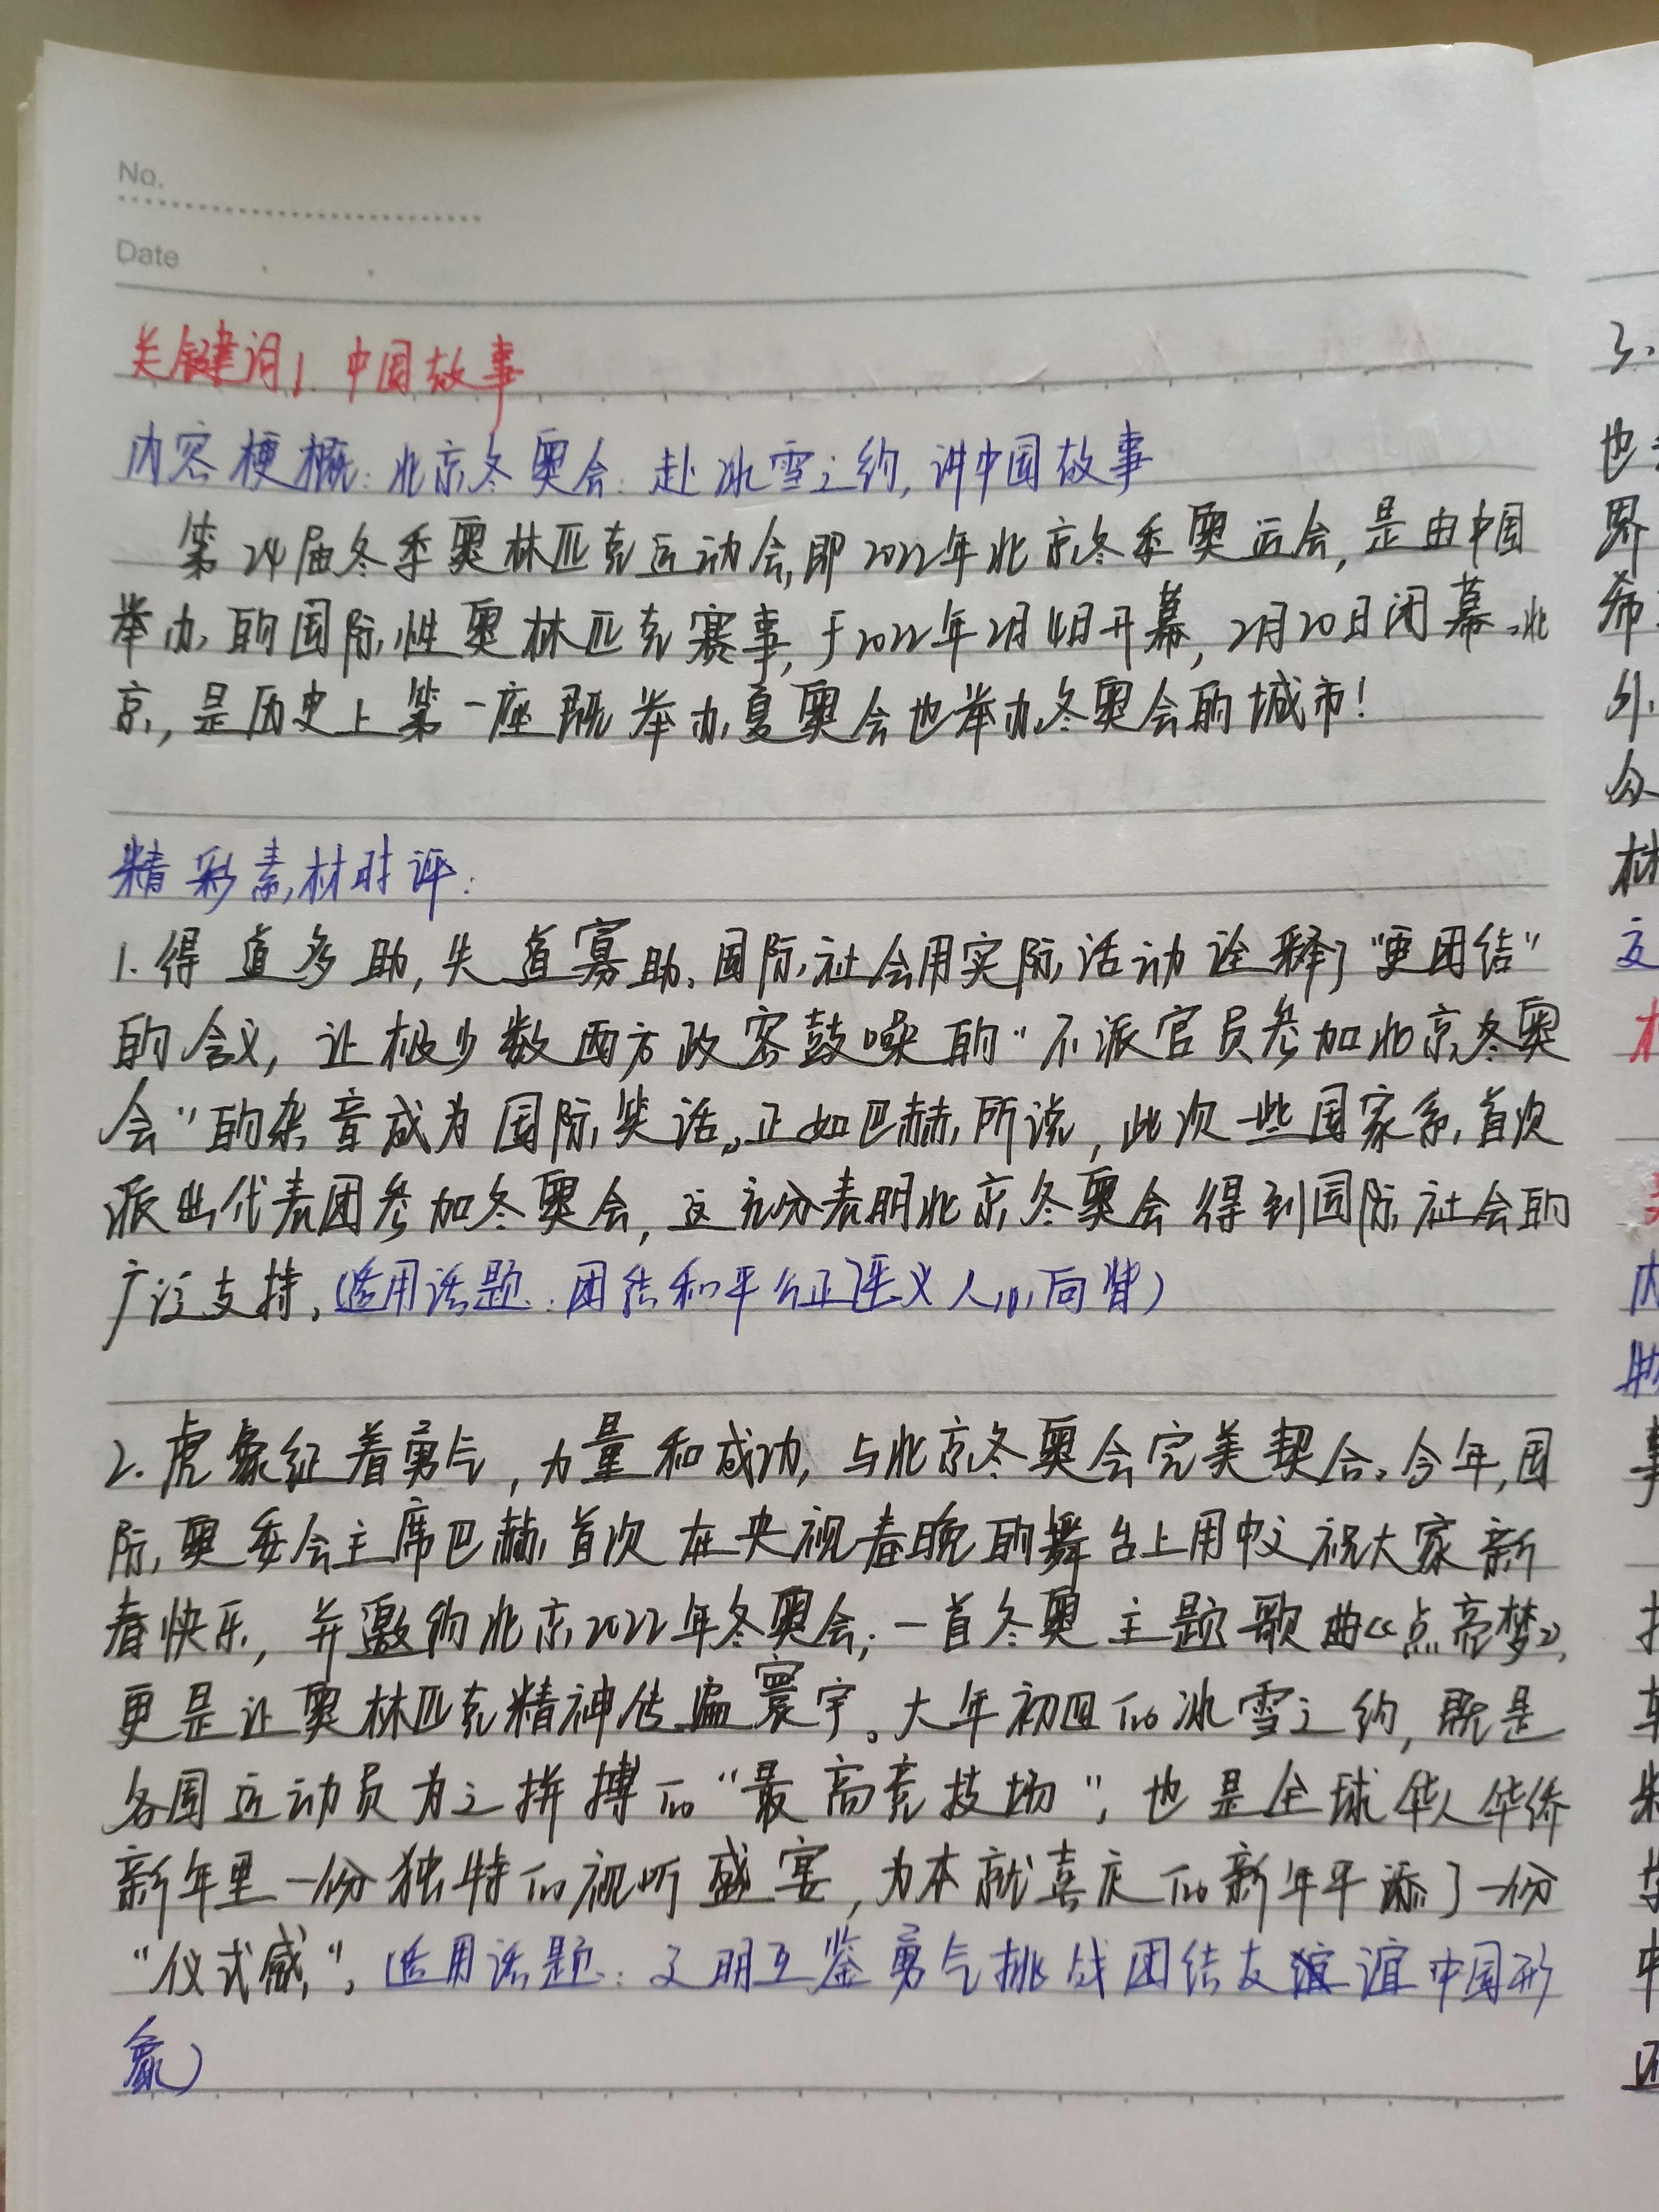 No.
Date
关键词1. 中国故事
内容梗概:北京冬奥会:赴冰雪之约,讲中国故事
第24届冬季奥林匹克运动会,即2022年北京冬季奥运会,是由中国
举办的国际性奥林匹克赛事,于2022年2月4日开幕,2月20日闭幕。北
京,是历史上第一座既举办夏奥会也举办冬奥会的城市!
精彩素材时评:
1.得道多助,失道寡助。国际社会用实际活动诠释了“更团结”
的含义,让极少数西方政客鼓噪的“不派官员参加北京冬奥
会”的杂音成为国际笑话。正如巴赫所说,此次一些国家系首次
派出代表团参加冬奥会,这充分表明北京冬奥会得到国际社会的
广泛支持。(适用话题:团结和平公正正义人心向背)
2.虎象征着勇气,力量和成功,与北京冬奥会完美契合。今年,国
际奥委会主席巴赫首次在央视春晚的舞台上用中文祝大家新
春快乐,并邀约北京2022年冬奥会;一首冬奥主题歌曲《点亮梦》,
更是让奥林匹克精神传遍寰宇。大年初四的冰雪之约,既是
各国运动员为之拼搏的“最高竞技场”,也是全球华人华侨
新年里一份独特的视听盛宴,为本就喜庆的新年平添了一份
“仪式感”。(适用话题:文明互鉴勇气挑战团结友谊中国形
象)
3.
也
界
希
外
众
林
内
事
中
还